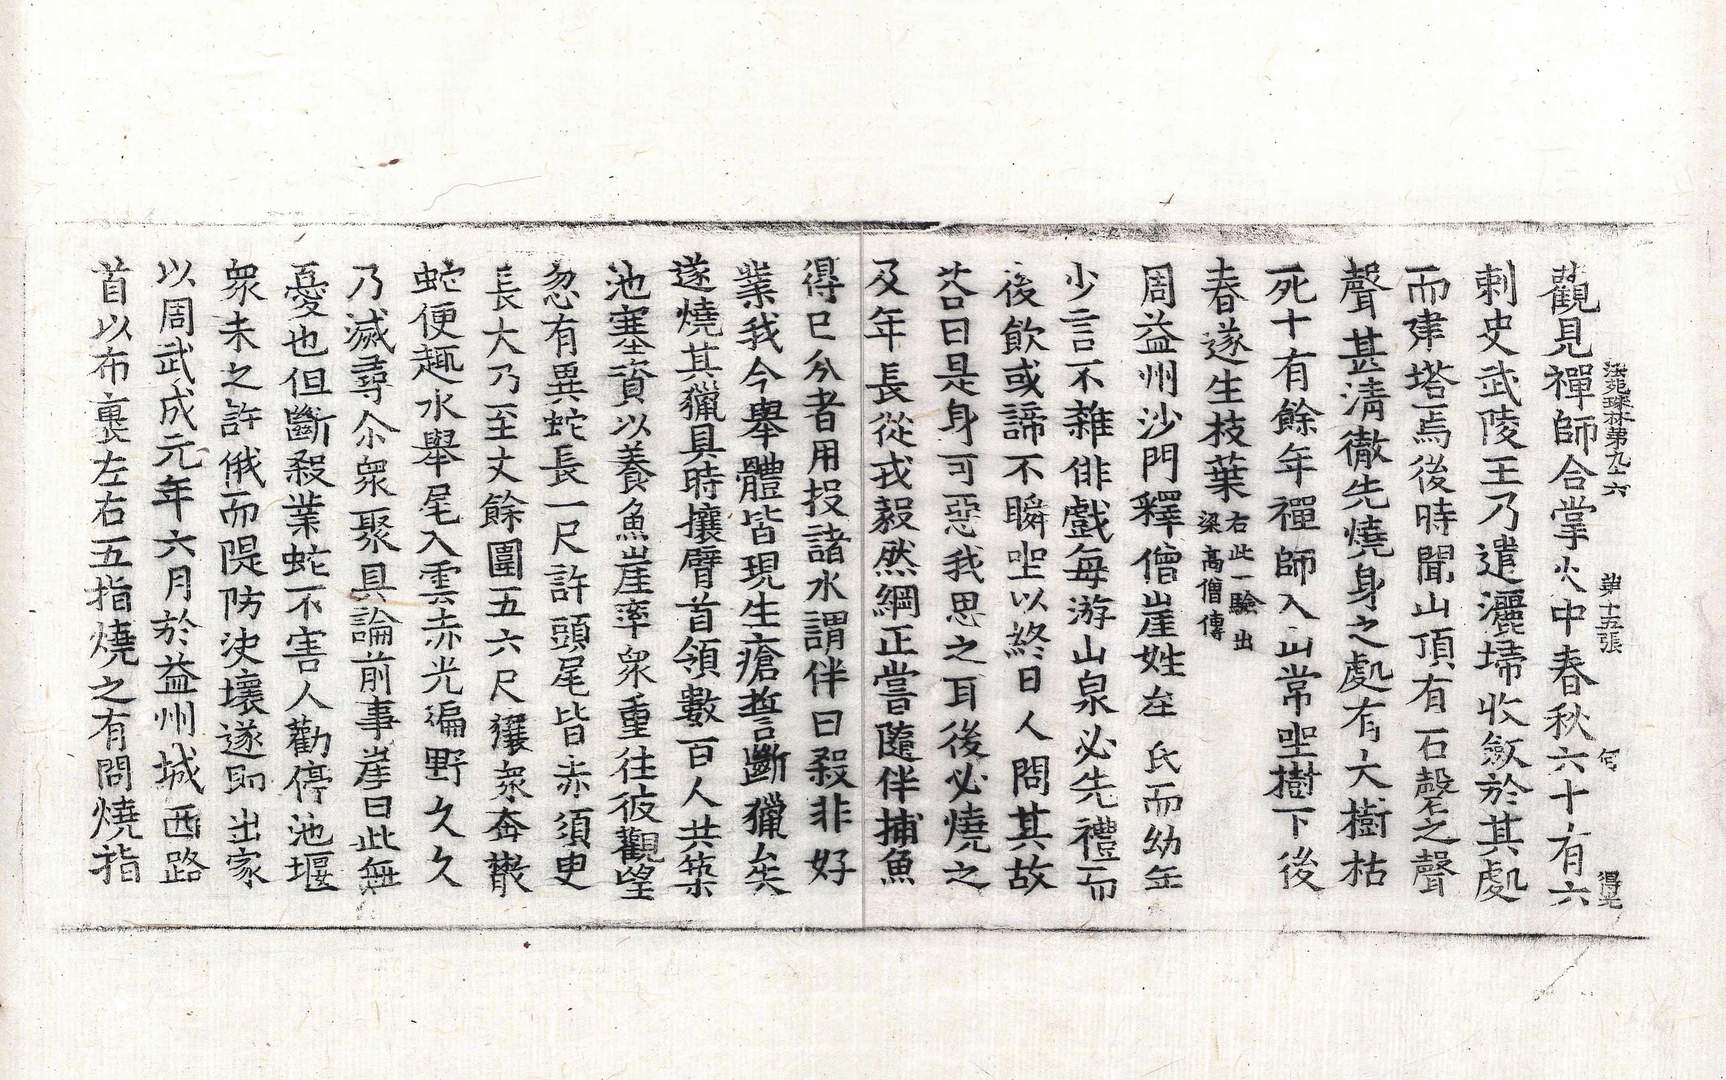 法苑珠林第九十六 第十五張 何 得光
觀見禪師合掌火中春秋六十有六
刺史武陵王乃遣灑埽收斂於其處
而建塔焉後時聞山頂有石磬之聲
聲甚清徹先燒身之處有大樹枯
死十有餘年禪師入山常坐樹下後
春遂生枝葉右此一驗出
梁高僧傳
周益州沙門釋僧崖姓牟氏而幼年
少言不雜俳戲每游山泉必先禮而
後飲或諦不瞬坐以終日人問其故
荅曰是身可惡我思之耳後必燒之
及年長從戎毅然綱正嘗隨伴捕魚
得已分者用投諸水謂伴曰殺非好
業我今舉體皆現生瘡誓斷獵矣
遂燒其獵具時攘臂首領數百人共築
池塞資以養魚崖率衆重往彼觀望
忽有異蛇長一尺許頭尾皆赤須臾
長大乃至丈餘圍五六尺獽衆奔散
蛇便趣水舉尾入雲赤光遍野久久
乃滅尋尒衆聚具論前事崖曰此無
憂也但斷殺業蛇不害人勸停池堰
衆未之許俄而隄防決壞遂即出家
以周武成元年六月於益州城西路
首以布裹左右五指燒之有問燒指